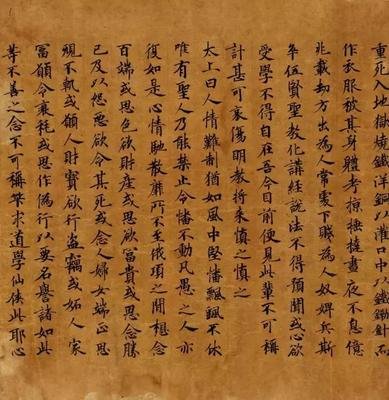 重死入地獄燒鐵洋銅以灌口中以鐵鋤
作衣服被其身體考掠撞晝夜不息億
兆載劫方出為人常處下賤為人奴婢兵斯
年伍賢聖教化講經說法不得預聞或心欲
受學不得自在吾今目前便見此輩不可稱
計甚可哀傷明教將來慎之慎之
太上曰人情難制猶如風中竪幡飄飄不休
唯有聖人乃能禁止令幡不動凡愚之人亦
復如是心情馳散靡所不至俄頃之間想念
百端或思色欲財產或思欲富貴或思念勝
己及以怨惡欲令其死或念人婦女端正思
覩不軌或願人財寶欲行盜竊或妬人家
富願令衰耗或思作偽行以要名譽諸如此
等不善之念不可稱筭求道學仙俠此耶心